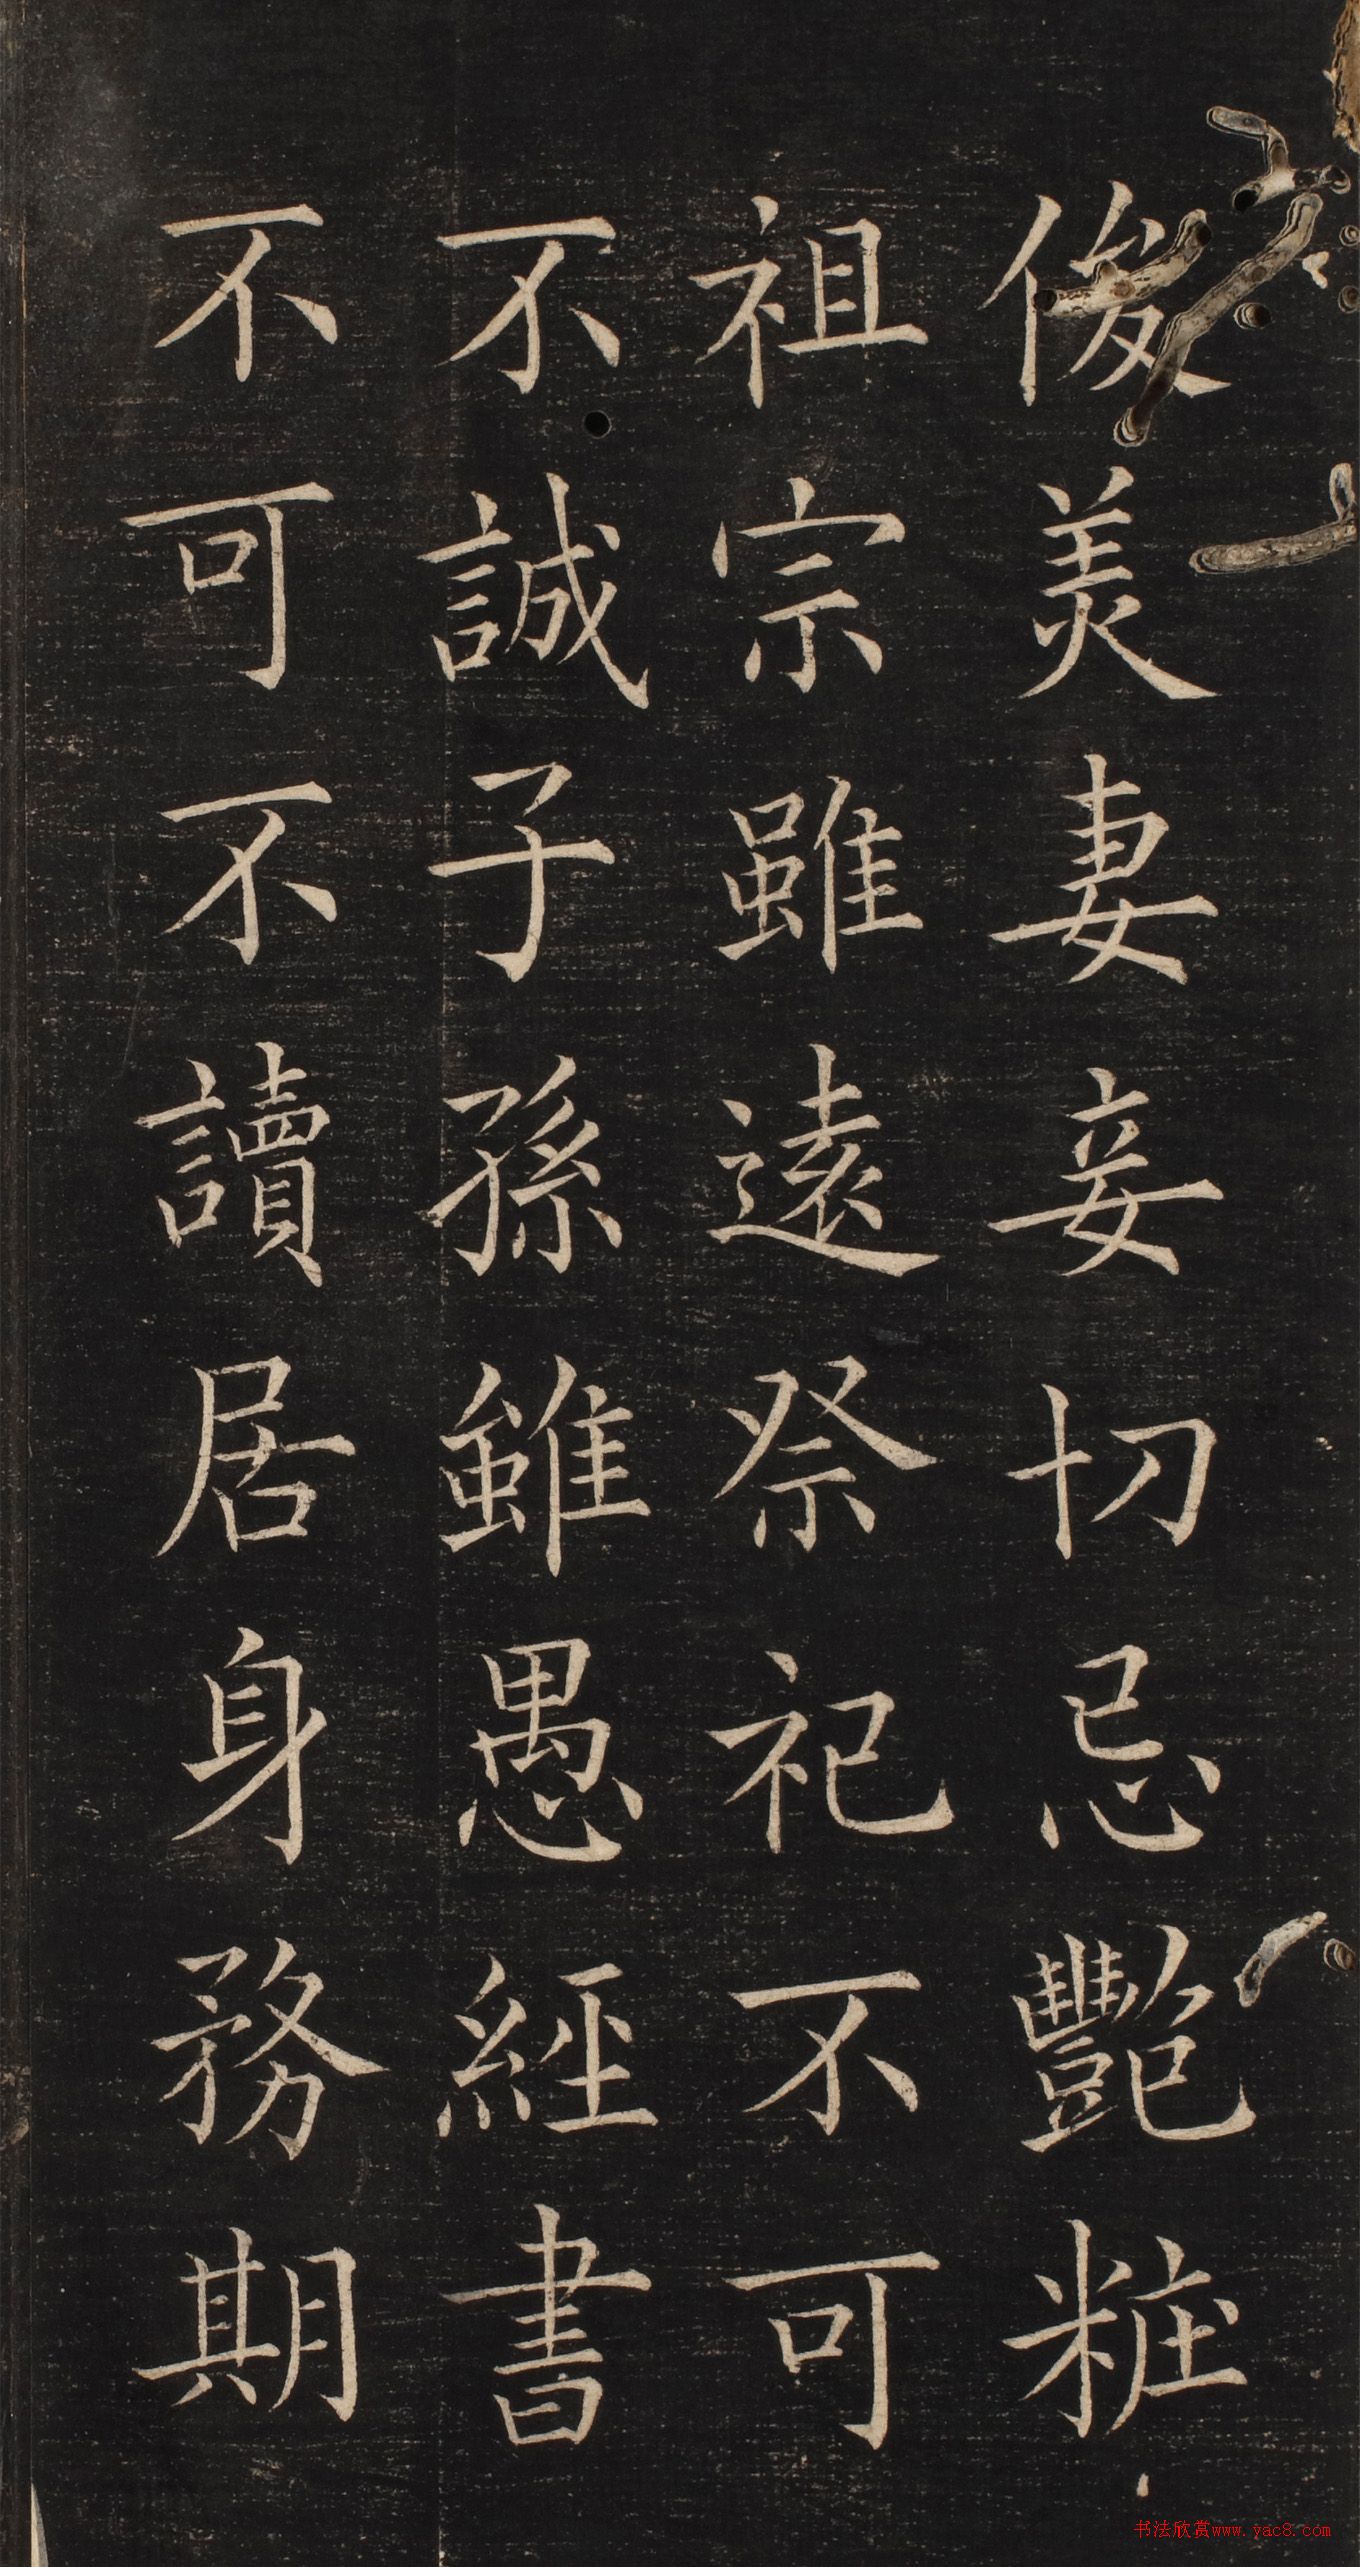 俊美妻妾切忌艷粧
祖宗雖遠祭祀不可
不誠子孫雖愚經書
不可不讀居身務期
书法欣赏www.yac8.com